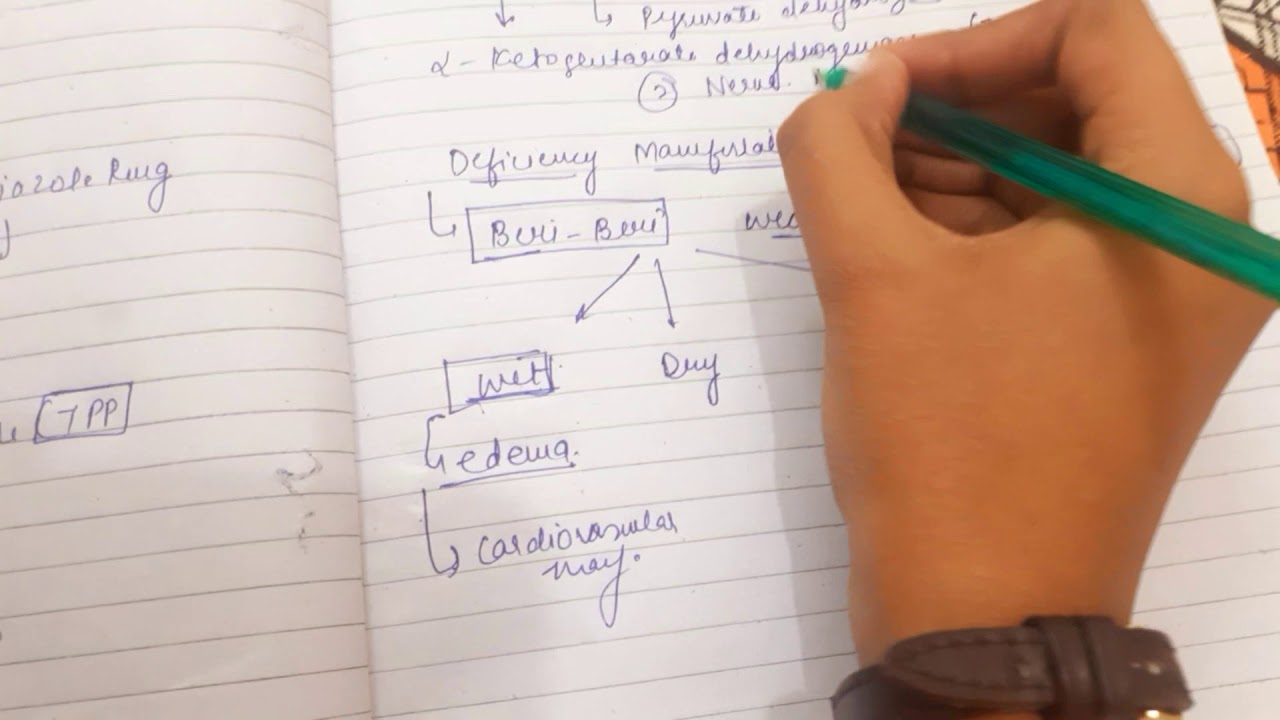 iazole Ring
TPP
Pyruvate
α- Ketoglutarate dehydrogenase
② Nerve.
Deficiency
Beri-Beri
wet
Dry
edema.
cardiovascular
may.